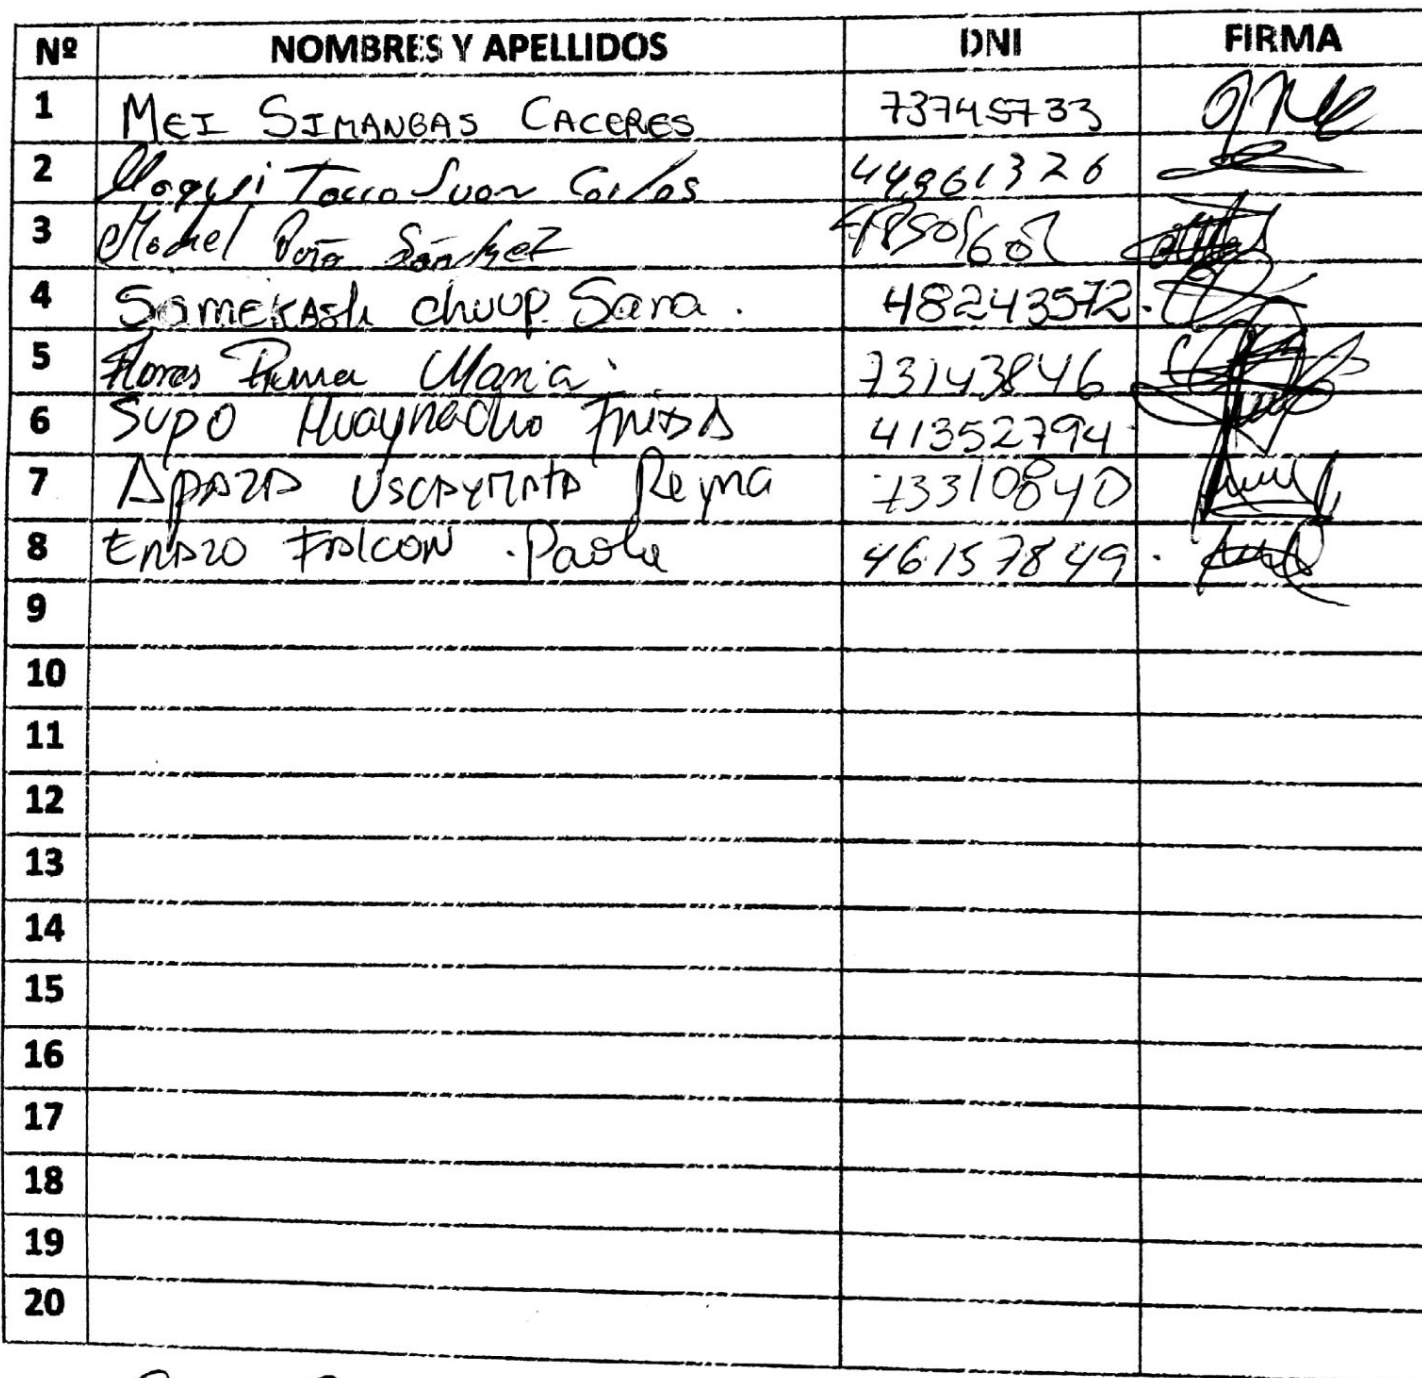 Nº NOMBRES Y APELLIDOS DNI FIRMA
1 MEI SIMANGAS CACERES 73745733
2 Tacco Juan Carlos 44961326
3 Peña Sánchez
4 Samekash chuup Sara. 48243572.
5 Flores Puma Maria. 73143846
6 SUPO Huaynacho FRIDA 41352794
7 APAZA USCAYMATA Reyna 73310840
8 ERAZO FALCON .Paola 46157849.
9
10
11
12
13
14
15
16
17
18
19
20